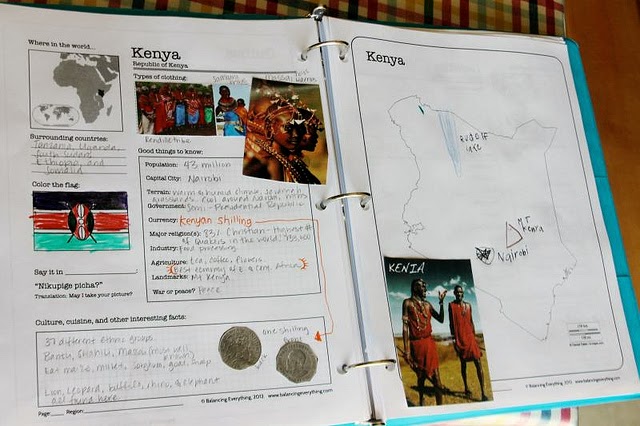 Where in the world...
Kenya
Republic of Kenya
Types of clothing:
Samburu
Rendille tribe
Surrounding countries:
Tanzania, Uganda,
South Sudan,
Ethiopia, and
Somalia
Color the flag:
Say it in
"Nikupige picha?"
Translation: May I take your picture?
Good things to know:
Population: 43 million
Capital City: Nairobi
Terrain: warm & humid climate, savannah
grasslands. Cool around Nairobi, mtns
Government: Semi-Presidential Republic
Currency: Kenyan shilling
Major religion(s): 83% Christian - Highest #
of Quakers in the world:
Industry: food processing
Agriculture: tea, coffee, flowers.
Best economy of E. & Cent. Africa
Landmarks: Mt. Kenya
War or peace? Peace
Culture, cuisine, and other interesting facts:
37 different ethnic groups
Bantu, Swahili, Massai (most well
known)
Eat maize, millet, sorghum, goat, soup
Lion, leopard, buffalo, rhino, & elephant
all found here.
one shilling
front
back
Page Region:
© Balancing Everything, 2013 www.balancingeverything.com
Kenya
RUDOLF
lake
MT
Kenya
Nairobi
KENIA
© Balancing Everything, 2013 www.balancingeverything.com